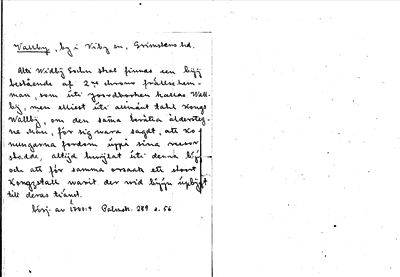 Wallby, by i Wiby sn, Grimstens hd.
Uti Widby Sochn skal finnas een byy
bestående af 2 ne chrono frälse hem-
man, som uti joordboken kallas Wall-
by, men elliest uti allmänt tahl Kongs
Wallby, om den samma berätta ålderste-
ne män, för sig wara sagdt, att Ko-
nungarna fordom uppå sina resor
hafde, altijd hwijlat uti denna by
och att för samma orsaak ett stoort
Kongzstall warit der wid byyn upbygt
till deras tiänst.
börj. av 1700-t Palmsk. 289 s. 56